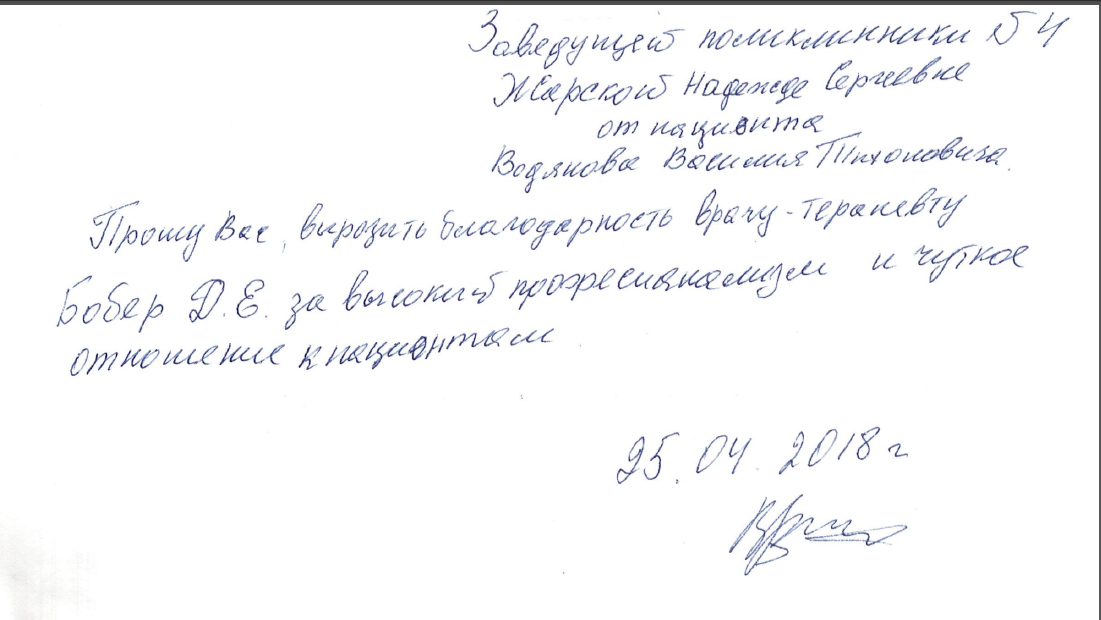 Заведущей поликлинники №4
Жарской Надежде Сергеевне
от пациэнта
Водянова Василия Тихоновича.
Прошу Вас, выразить благодарность врачу-терапевту
Бобер Д.Е. за высокий професианализм и чуткое
отношение к пациэнтам
25.04.2018г